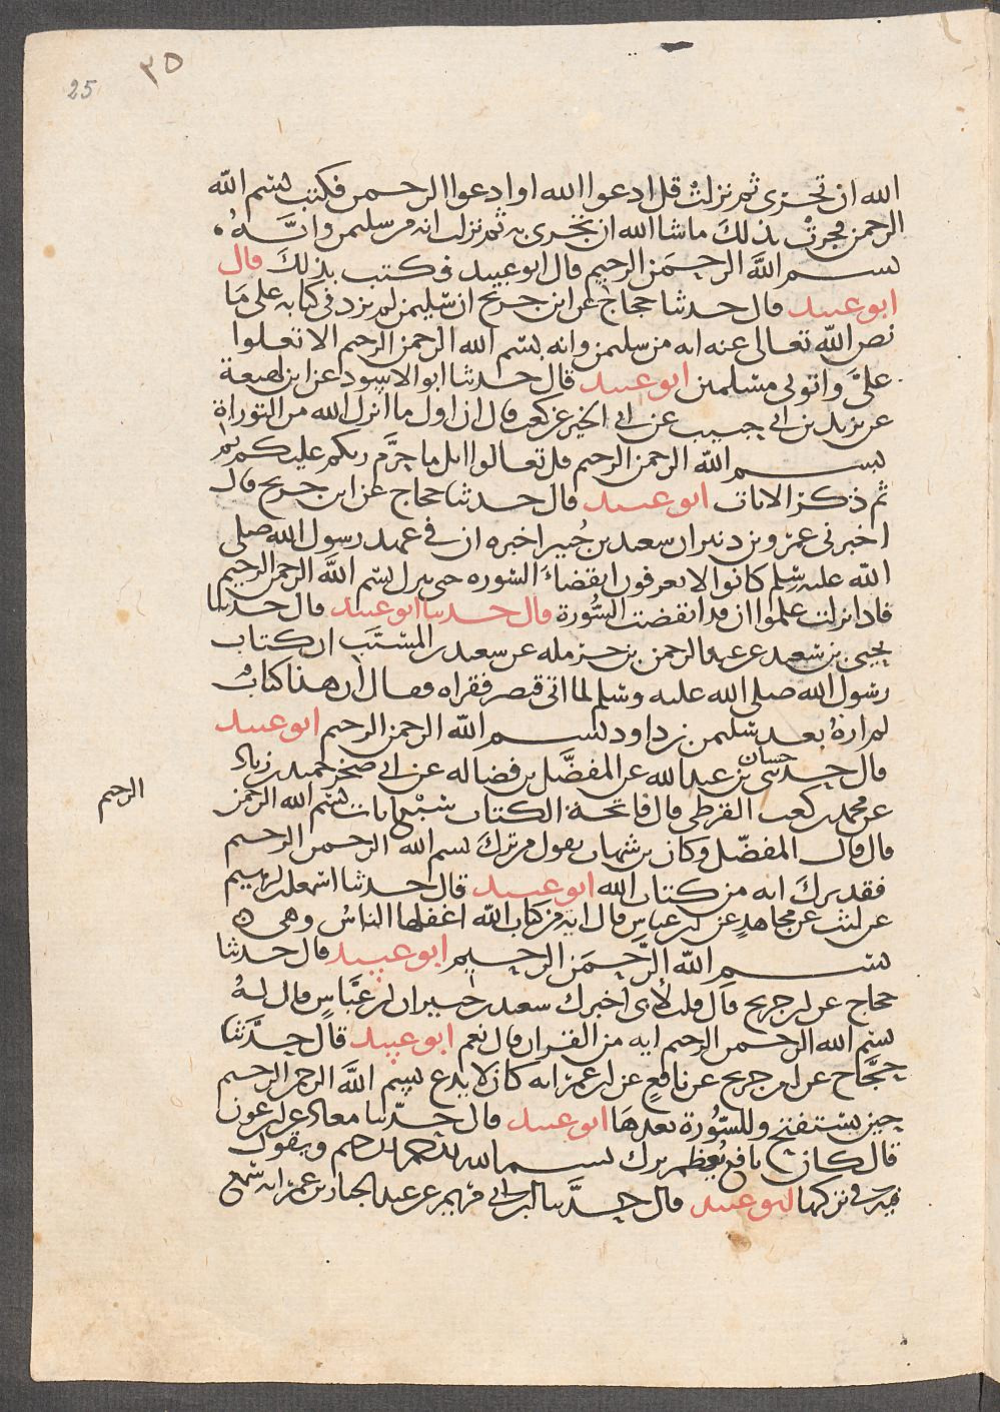 ٢٥
25
الله ان تجرى ثم نزلت قل ادعوا الله او ادعوا الرحمن فكتب بسم الله
الرحمن فجرت بذلك ما شا الله ان تجرى به ثم نزلت انه من سليمن وانه
بسم الله الرحمن الرحيم قال ابو عبيد فكتب بذلك قال
ابو عبيد قال حدثنا حجاج عن ابن جريج ان سليمن لم يزد فى كتابه على ما
نص الله تعالى عنه انه من سليمن وانه بسم الله الرحمن الرحيم الا تعلوا
علىّ واتونى مسلمين ابو عبيد قال حدثنا ابو الاسود عن ابن لهيعة
عن يزيد بن ابى حبيب عن ابى الخير عن كعب قال ان اول ما انزل الله من التوراة
بسم الله الرحمن الرحيم قل تعالوا اتل ما حرّم ربكم عليكم
ثم ذكر الايات ابو عبيد قال حدثنا حجاج عن ابن جريج قال
اخبرنى عمرو بن دينر ان سعيد بن جُبير اخبره ان فى عهد رسول الله صلى
الله عليه وسلم كانوا لا يعرفون انقضاء السوره حتى ينزل بسم الله الرحمن الرحيم
فاذا نزلت علموا ان قد انقضت السُّورة قال حدثنا ابو عبيد قال حدثنا
يحيى بن سعيد عن عبد الرحمن بن حرمله عن سعيد بن المسيَّب ان كتاب
رسول الله صلى الله عليه وسلم لما اتى قيصر فقراه فقال ان هذا كتابٌ
لم ارهُ بعد سليمن بن داود بسم الله الرحمن الرحيم ابو عبيد
قال حدثنى حسان بن عبد الله عن المفضَّل بن فضاله عن ابى صخر حميد بن زياد
عن محمد بن كعب القرظى قال فاتحة الكتاب سَبْع ايات بسم الله الرحمن
الرحيم
قال قال المفضّل وكان بن شهاب يقول من ترك بسم الله الرحمن الرحيم
فقد ترك ايه من كتاب الله ابو عبيد قال حدثنا اسمعيل بن ابرهيم
عن ليث عن مجاهدٍ عن بن عباس قال ايه من كتاب الله اغفلها الناسُ وهى
بسم الله الرَّحمَن الرحيم ابو عبيد قال حدثنا
حجاج عن بن جريج قال قلت لابى اخبرك سعيد بن جبير ان بن عبَّاسٍ قال لهُ
بسم الله الرحمن الرحيم ايه من القران قال نعم ابو عبيد قال حدَّثنا
حجَّاح عن بن جريج عن نافعٍ عن بن عمر انه كان لا يدع بسم الله الرحمن الرحيم
حين يستفتح وللسُّورة بعدهَا ابو عبيد قال حدّثنا معاذ عن بن عون
قال كان نافع يُعظم ترك بسم الله الرحمن الرحيم ويقول
فى تركها ابو عبيد قال حدَّثنا ابن ابى مريم عن عبد الجبار بن عمر انه سمع